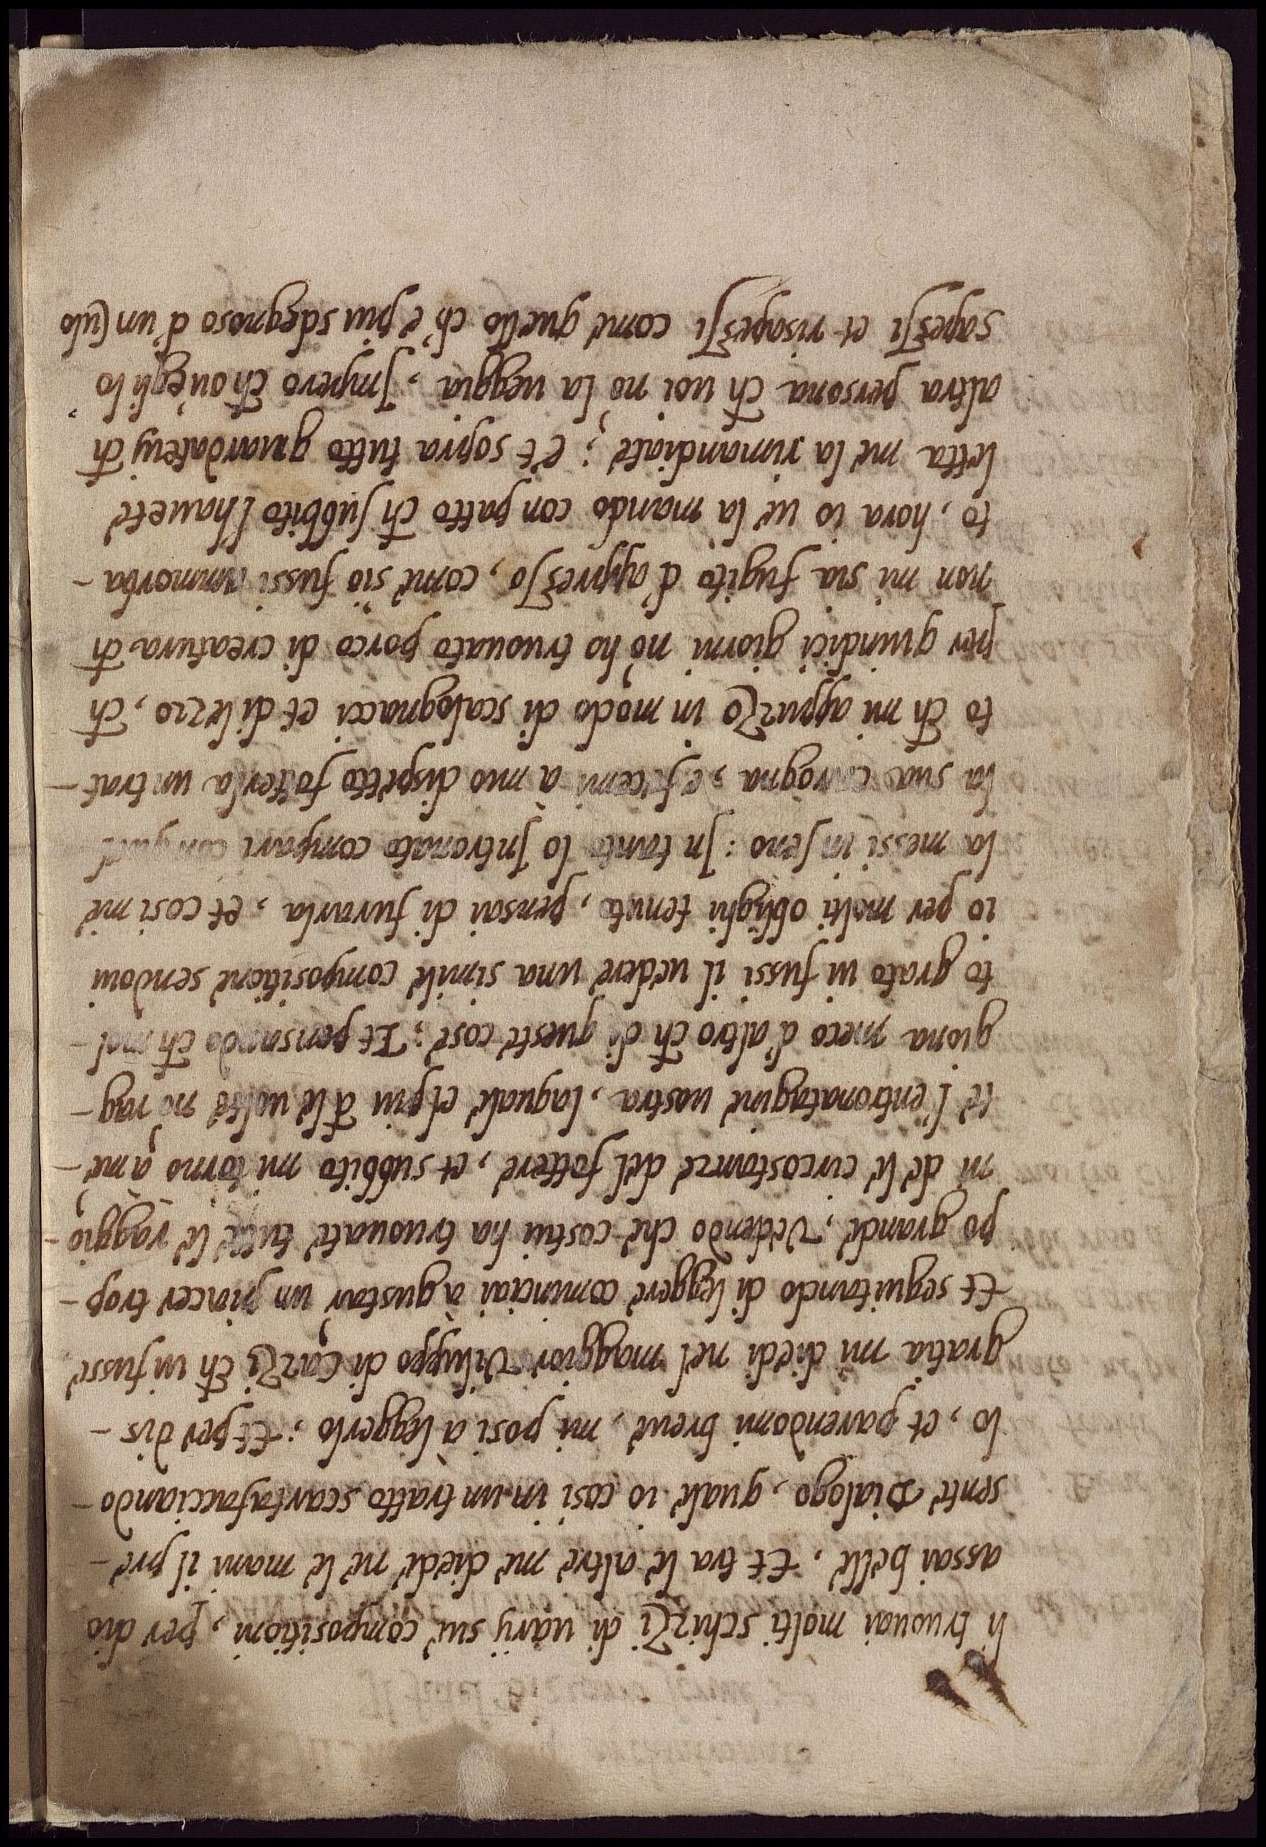 li truouai molti schirzi di uarij sue compositioni, per dio
assai belle, Et tra le altre me diede ne le mani il pre-
sente Dialogo, quale io cosi in un tratto scartafacciando-
lo, et parendomi breue, mi posi a leggerlo; Et per dis-
gratia mi diedi nel maggior Viluppo di Cazzi ch̃ ui fusse
Et seguitando di leggere comminciai à gustar un piacer trop-
po grande, Vedendo che costui ha truouate tutte le raggio-
ni de le circostanze del fottere, et subbito mi torno à me-
te l'entronatagine uostra, laquale el piu d̃le uolte nõ rag-
giona meco d'altro ch̃ di queste cose; Et pensando ch̃ mol-
to grato ui fussi il uedere una simile compositione sendoui
io per molti oblighi tenuto, pensai di furarla, et cosi me
la messi in seno: In tanto lo Intronato compari con
la sua carogna, e fecemi à mio dispetto fotterla un trat-
to ch̃ mi appuzzo in modo di scalognacci et di lezzo, ch̃,
per quindici giorni nõ hò truouato porco di creatura ch̃
non mi sia fugito d'appresso, come s'io fussi ammorba-
to, hora io ue la mando con patto ch̃ subbito l'hauete
letta me la rimandiate; Et sopra tutto guardateuj ch̃
altra persona ch̃ uoi nõ la ueggia, Impero ch̃ ou'egli lo
sapessi et risapessi come quello ch'è piu sdegnoso d'un culo